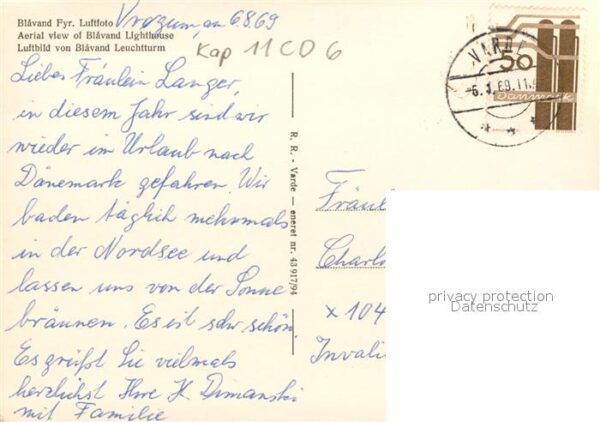 Blåvand Fyr. Luftfoto
Aerial view of Blåvand Lighthouse
Luftbild von Blåvand Leuchtturm
Vrøgum, am 6.8.69
Kap 11 CD 6
Liebes Fräulein Langer,
in diesem Jahr sind wir
wieder im Urlaub nach
Dänemark gefahren. Wir
baden täglich mehrmals
in der Nordsee und
lassen uns von der Sonne
bräunen. Es ist sehr schön.
Es grüßt Sie vielmals
herzlichst Ihre H. Dimanski
mit Familie
R. R. - Varde - eneret nr. 43917/94
VARDE
50
Danmark
Fräul
Charlo
x 104
Invali
privacy protection
Datenschutz